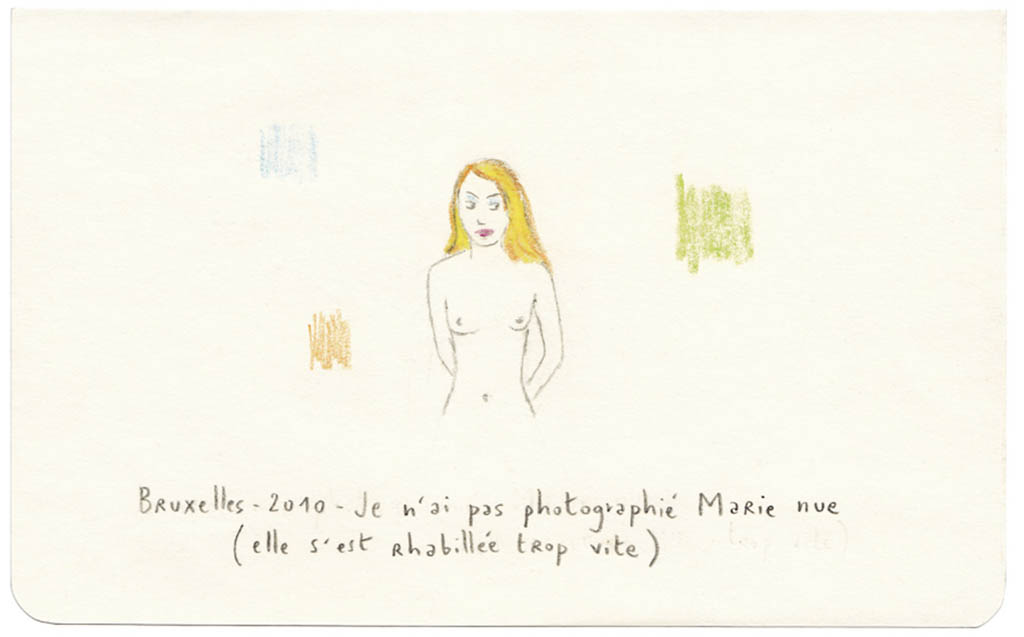 Bruxelles - 2010 - Je n'ai pas photographié Marie nue
(elle s'est rhabillée trop vite)